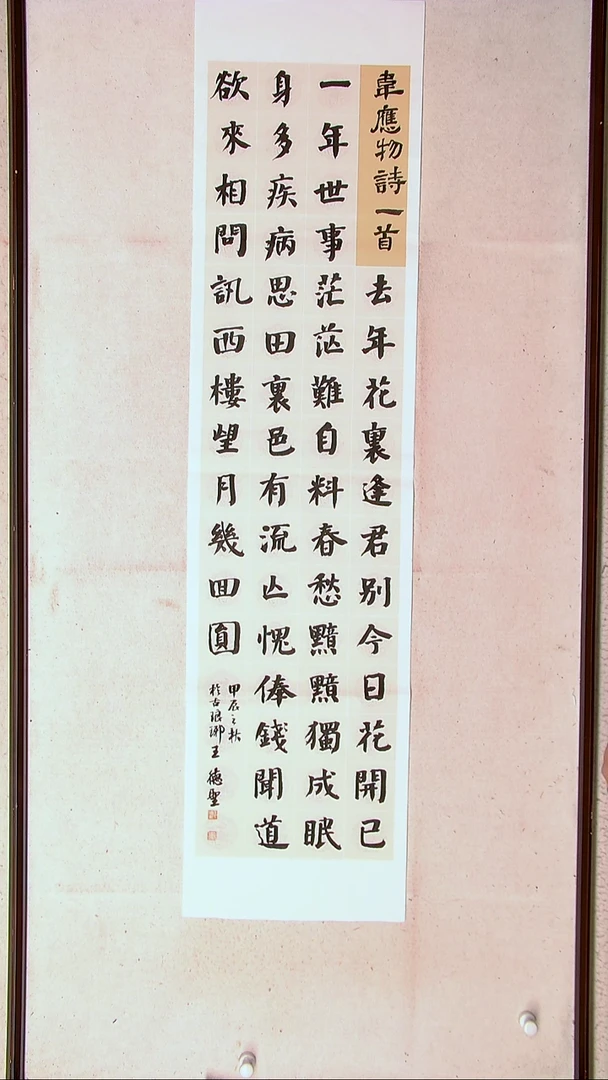 韋應物詩一首
去年花裏逢君別今日花開已
一年世事茫茫難自料春愁黯黯獨成眠
身多疾病思田裏邑有流亾愧俸錢聞道
欲來相問訊西樓望月幾囬圓
甲辰之秋
於古琅琊王德聖